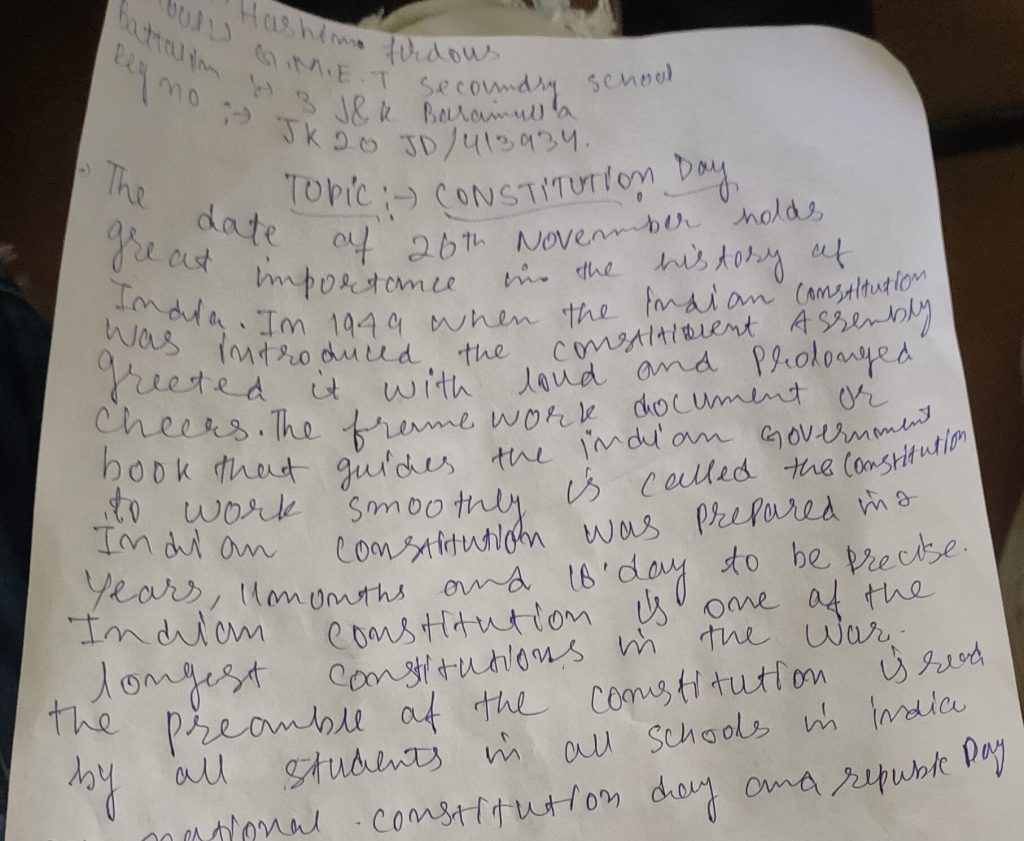 Hashim firdous
G.M.E.T Secoundry school
Battalion :-> 3 J&K Baramulla
Reg no :-> JK20 JD/413934.
TOPIC :-> CONSTITUTION Day
The date of 26th November holds
great importance in the history of
India. In 1949 when the Indian Constitution
was introduced the constituent Assembly
greeted it with loud and prolonged
cheers. The frame work document or
book that guides the indian Government
to work smoothly is called the Constitution
Indian constitution was prepared in 2
years, 11 months and 18 day to be precise.
Indian constitution is one of the
longest constitutions in the war.
the preamble of the constitution is read
by all students in all schools in india
national constitution day and republc Day